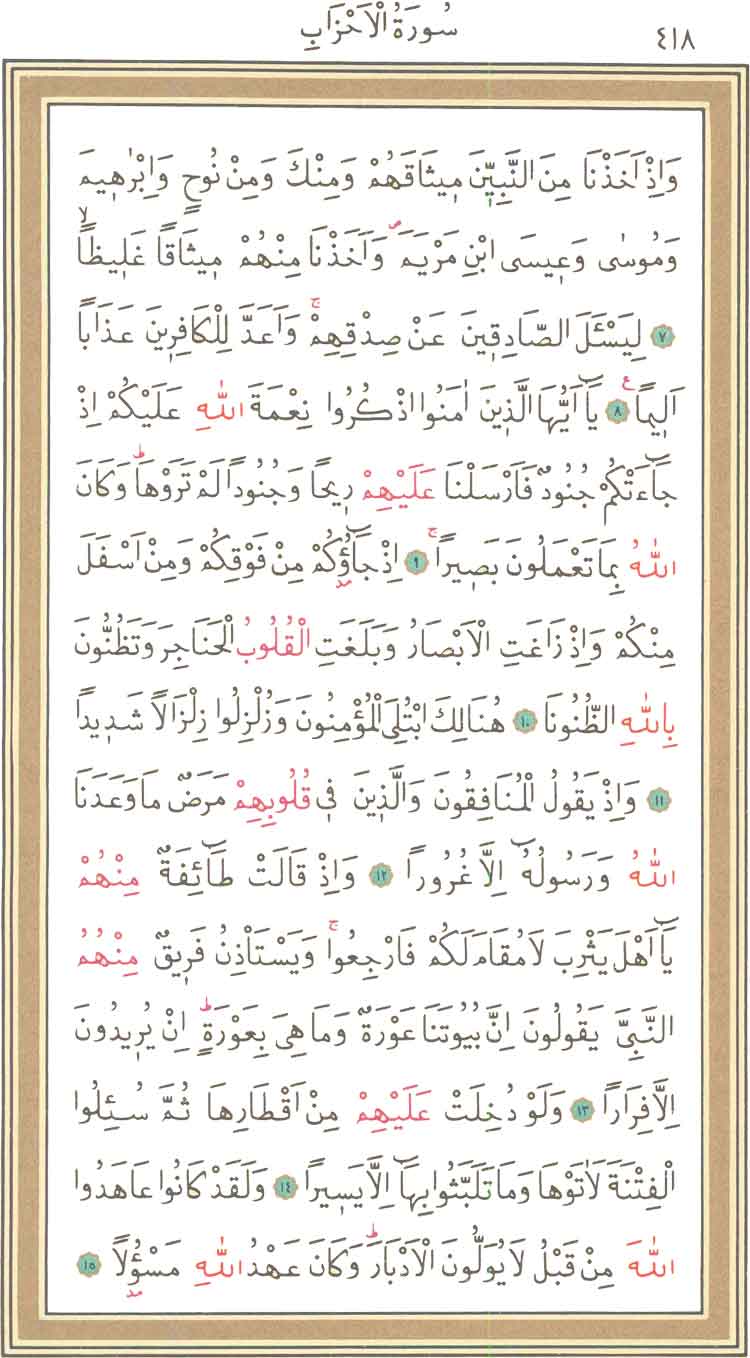 ٤١٨
سُورَةُ الْاَحْزَابِ
وَاِذْ اَخَذْنَا مِنَ النَّبِيّ۪نَ م۪يثَاقَهُمْ وَمِنْكَ وَمِنْ نُوحٍ وَاِبْرٰه۪يمَ
وَمُوسٰى وَع۪يسَى ابْنِ مَرْيَمَۖ وَاَخَذْنَا مِنْهُمْ م۪يثَاقاً غَل۪يظاًۙ
﴿٧﴾ لِيَسْـَٔلَ الصَّادِق۪ينَ عَنْ صِدْقِهِمْۚ وَاَعَدَّ لِلْكَافِر۪ينَ عَذَاباً
اَل۪يماًࣖ ﴿٨﴾ يَٓا اَيُّهَا الَّذ۪ينَ اٰمَنُوا اذْكُرُوا نِعْمَةَ اللّٰهِ عَلَيْكُمْ اِذْ
جَٓاءَتْكُمْ جُنُودٌ فَاَرْسَلْنَا عَلَيْهِمْ ر۪يحاً وَجُنُوداً لَمْ تَرَوْهَاۜ وَكَانَ
اللّٰهُ بِمَا تَعْمَلُونَ بَص۪يراًۚ ﴿٩﴾ اِذْ جَٓاؤُ۫كُمْ مِنْ فَوْقِكُمْ وَمِنْ اَسْفَلَ
مِنْكُمْ وَاِذْ زَاغَتِ الْاَبْصَارُ وَبَلَغَتِ الْقُلُوبُ الْحَنَاجِرَ وَتَظُنُّونَ
بِاللّٰهِ الظُّنُونَا ﴿١٠﴾ هُنَالِكَ ابْتُلِيَ الْمُؤْمِنُونَ وَزُلْزِلُوا زِلْزَالاً شَد۪يداً
﴿١١﴾ وَاِذْ يَقُولُ الْمُنَافِقُونَ وَالَّذ۪ينَ ف۪ي قُلُوبِهِمْ مَرَضٌ مَا وَعَدَنَا
اللّٰهُ وَرَسُولُهُٓ اِلَّا غُرُوراً ﴿١٢﴾ وَاِذْ قَالَتْ طَٓائِفَةٌ مِنْهُمْ
يَٓا اَهْلَ يَثْرِبَ لَا مُقَامَ لَكُمْ فَارْجِعُواۚ وَيَسْتَأْذِنُ فَر۪يقٌ مِنْهُمُ
النَّبِيَّ يَقُولُونَ اِنَّ بُيُوتَنَا عَوْرَةٌ وَمَا هِيَ بِعَوْرَةٍۜ اِنْ يُر۪يدُونَ
اِلَّا فِرَاراً ﴿١٣﴾ وَلَوْ دُخِلَتْ عَلَيْهِمْ مِنْ اَقْطَارِهَا ثُمَّ سُئِلُوا
الْفِتْنَةَ لَاٰتَوْهَا وَمَا تَلَبَّثُوا بِهَٓا اِلَّا يَس۪يراً ﴿١٤﴾ وَلَقَدْ كَانُوا عَاهَدُوا
اللّٰهَ مِنْ قَبْلُ لَا يُوَلُّونَ الْاَدْبَارَۜ وَكَانَ عَهْدُ اللّٰهِ مَسْؤُ۫لاً ﴿١٥﴾